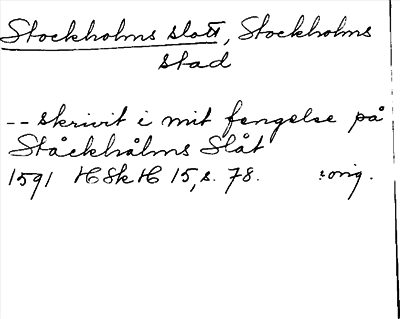 Stockholms slott, Stockholms
stad
-- skrivit i mit fengelse på
Ståckhålms Slåt
1591 HSkH 15, s. 78. :orig.